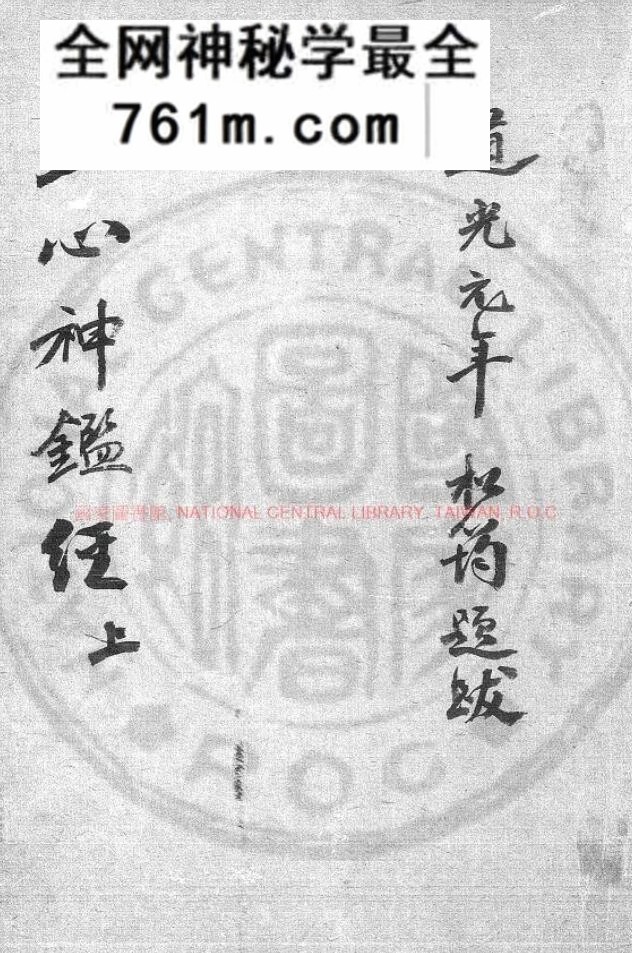 全网神秘学最全
761m.com
道光元年 松筠題跋
心神鑑經上
國家圖書館, NATIONAL CENTRAL LIBRARY, TAIWAN, R.O.C